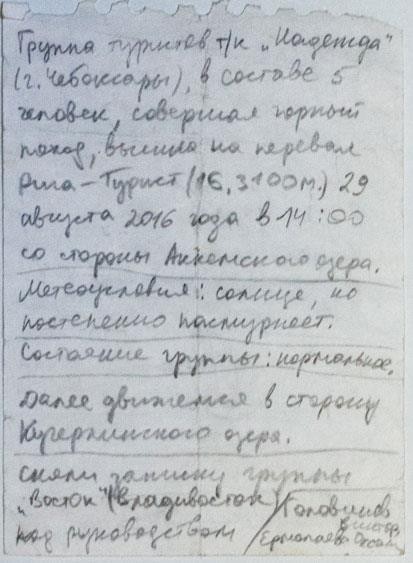 Группа туристов т/к „Надежда"
(г. Чебоксары), в составе 5
человек, совершая горный
поход, вышла на перевал
Рига-Турист (1Б, 3100м.) 29
августа 2016 года в 14:00
со стороны Аккемского озера.
Метеоусловия: солнце, но
постепенно пасмурнеет.
Состояние группы: нормальное.
Далее движемся в сторону
Кучерлинского озера.
Сняли записку группы
„Восток" (Владивосток)
под руководством
/Головинов
Виктор
/Ермолаева Оксана